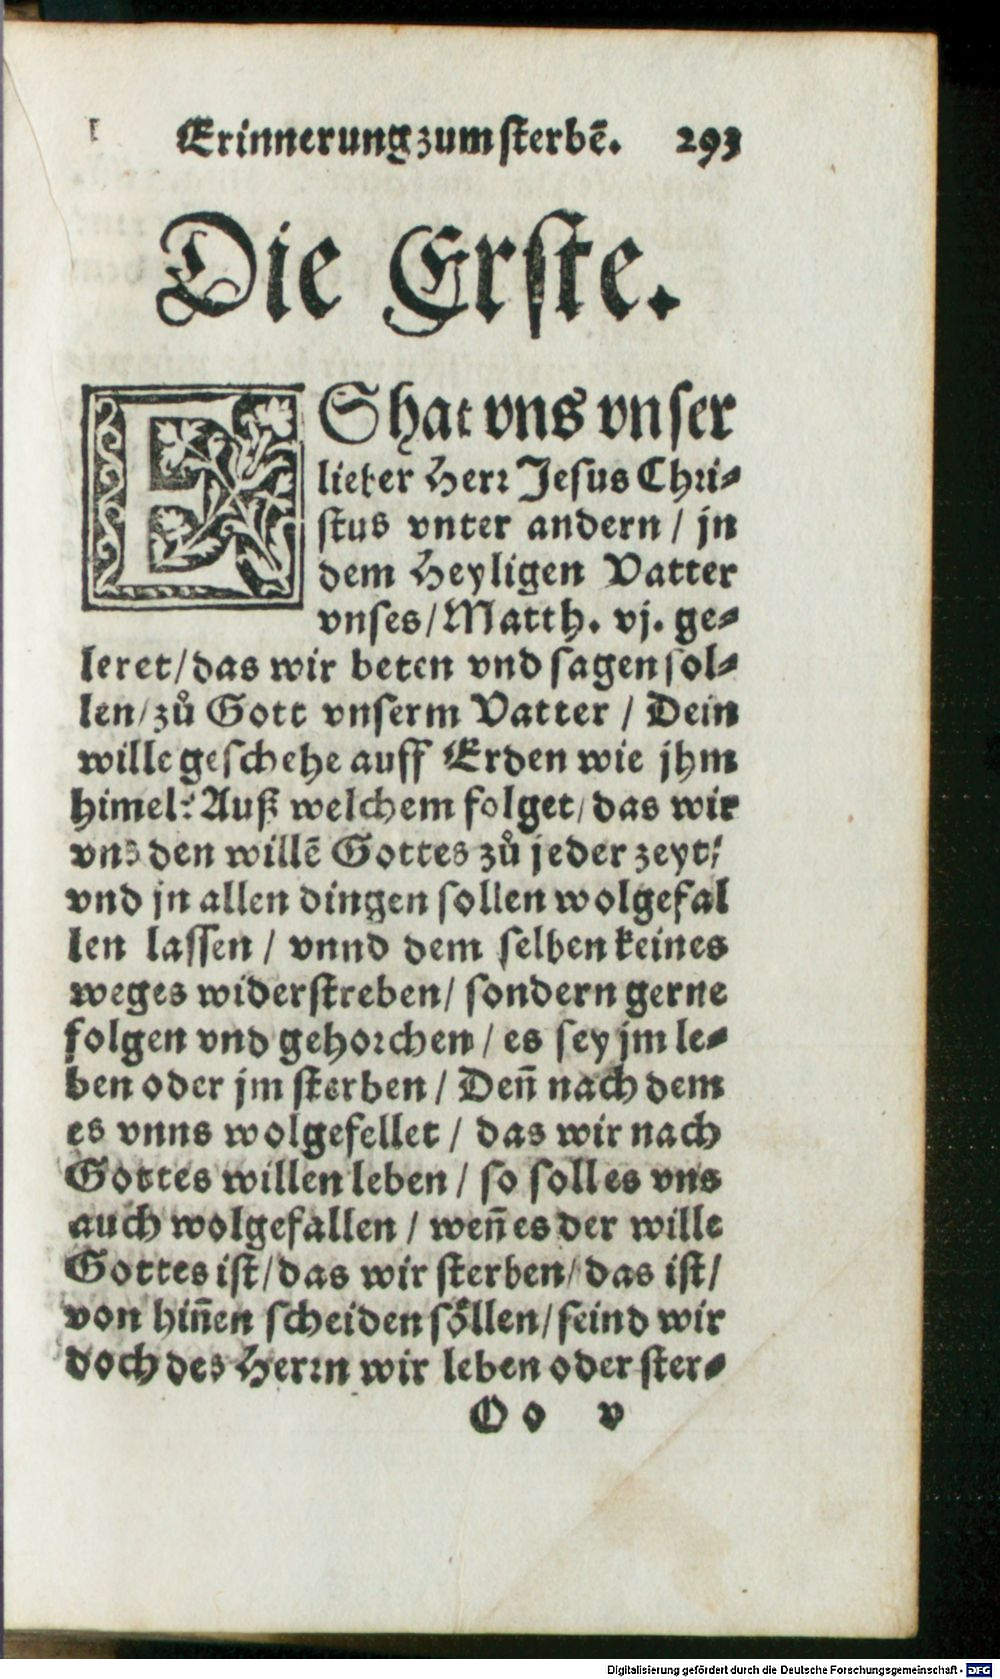 Erinnerung zum sterbē. 293
Die Erste.
ES hat vns vnser
lieber Herr Jesus Chri-
stus vnter andern / jn
dem Heyligen Vatter
vnses / Matth. vj. ge-
leret / das wir beten vnd sagen sol-
len / zů Gott vnserm Vatter / Dein
wille geschehe auff Erden wie jhm
himel: Auß welchem folget / das wir
vns den willē Gottes zů jeder zeyt /
vnd jn allen dingen sollen wolgefal
len lassen / vnnd dem selben keines
weges widerstreben / sondern gerne
folgen vnd gehorchen / es sey jm le-
ben oder jm sterben / Den̄ nach dem
es vnns wolgefellet / das wir nach
Gottes willen leben / so soll es vns
auch wolgefallen / wen̄ es der wille
Gottes ist / das wir sterben / das ist /
von hin̄en scheiden söllen / seind wir
doch des Herrn wir leben oder ster-
Oo v
Digitalisierung gefördert durch die Deutsche Forschungsgemeinschaft - DFG